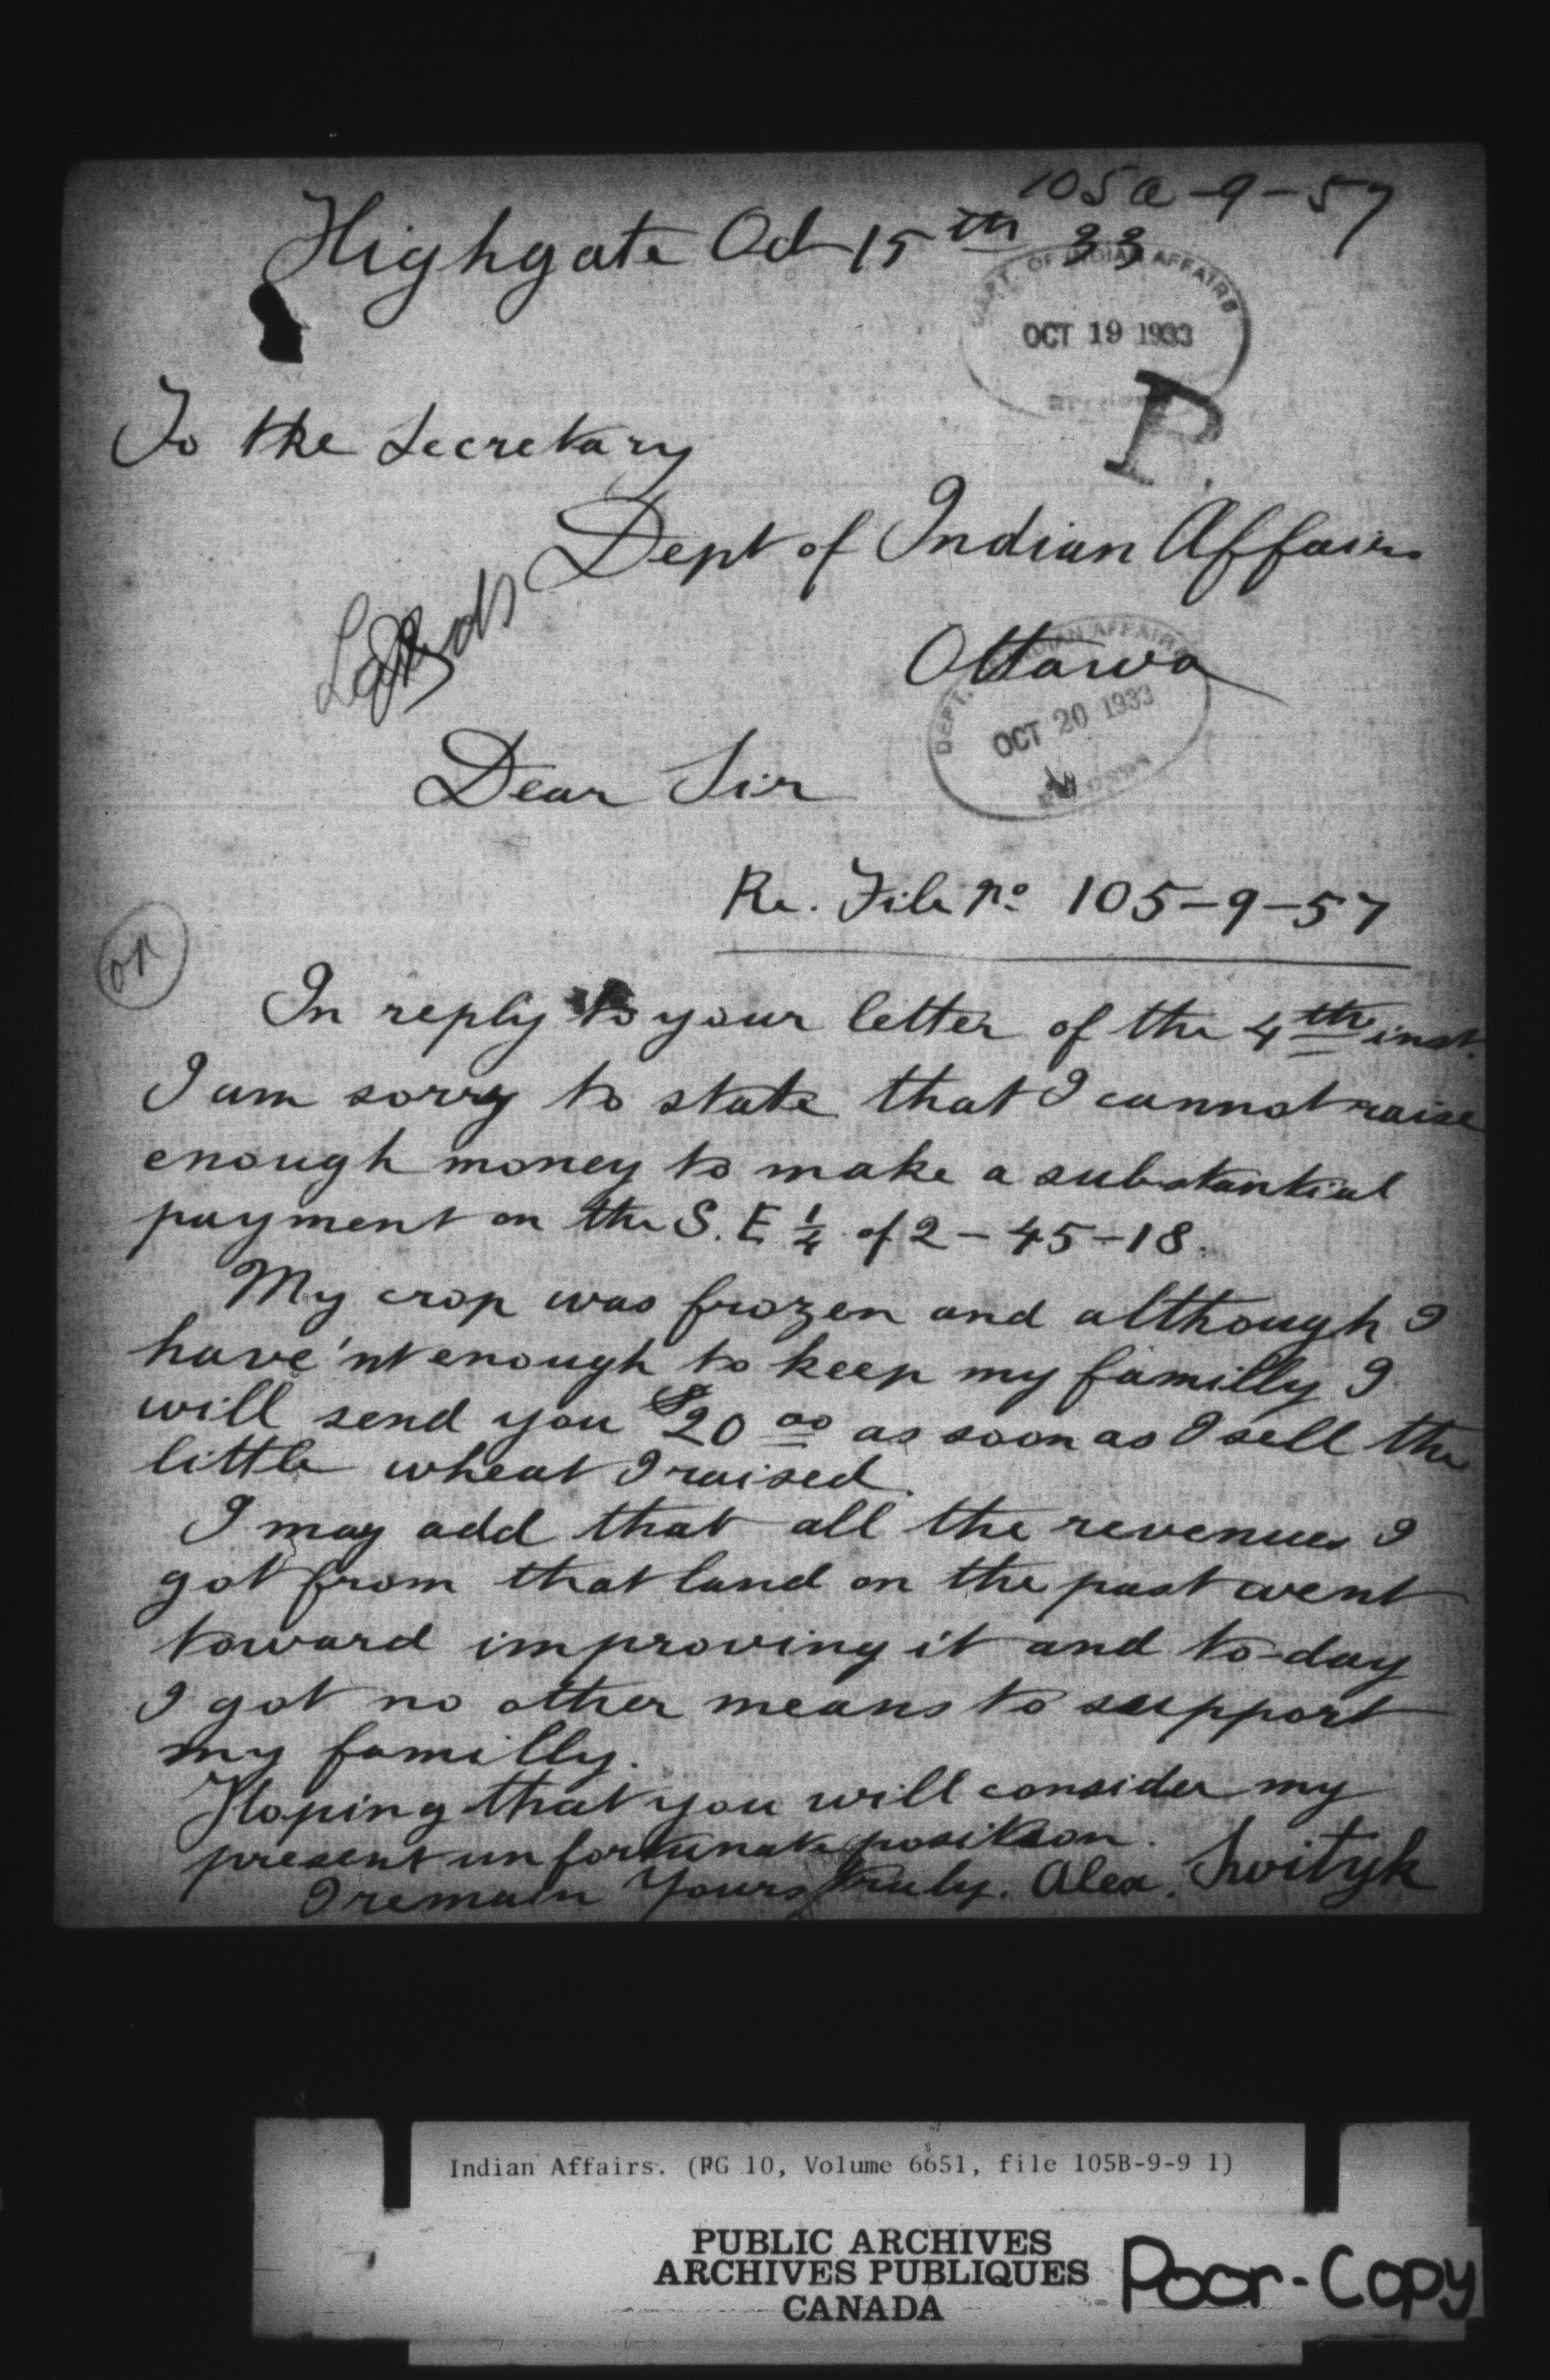 105a-9-57
Highgate Oct 15th 33
DEPT. OF INDIAN AFFAIRS
OCT 19 1933
P.
To the Secretary
Dept of Indian Affairs
Ottawa
DEPT. INDIAN AFFAIRS
OCT 20 1933
Dear Sir
Re. File No 105-9-57
In reply to your letter of the 4th inst.
I am sorry to state that I cannot raise
enough money to make a substantial
payment on the S.E 1/4 of 2-45-18.
My crop was frozen and although I
have'nt enough to keep my familly I
will send you $20 00 as soon as I sell the
little wheat I raised.
I may add that all the revenues I
got from that land on the past went
toward improving it and to-day
I got no other means to support
my familly.
Hoping that you will consider my
present unfortunate position.
I remain Yours truly. Alex. Swityk
Indian Affairs. (RG 10, Volume 6651, file 105B-9-9 1)
PUBLIC ARCHIVES
ARCHIVES PUBLIQUES
CANADA
Poor-Copy